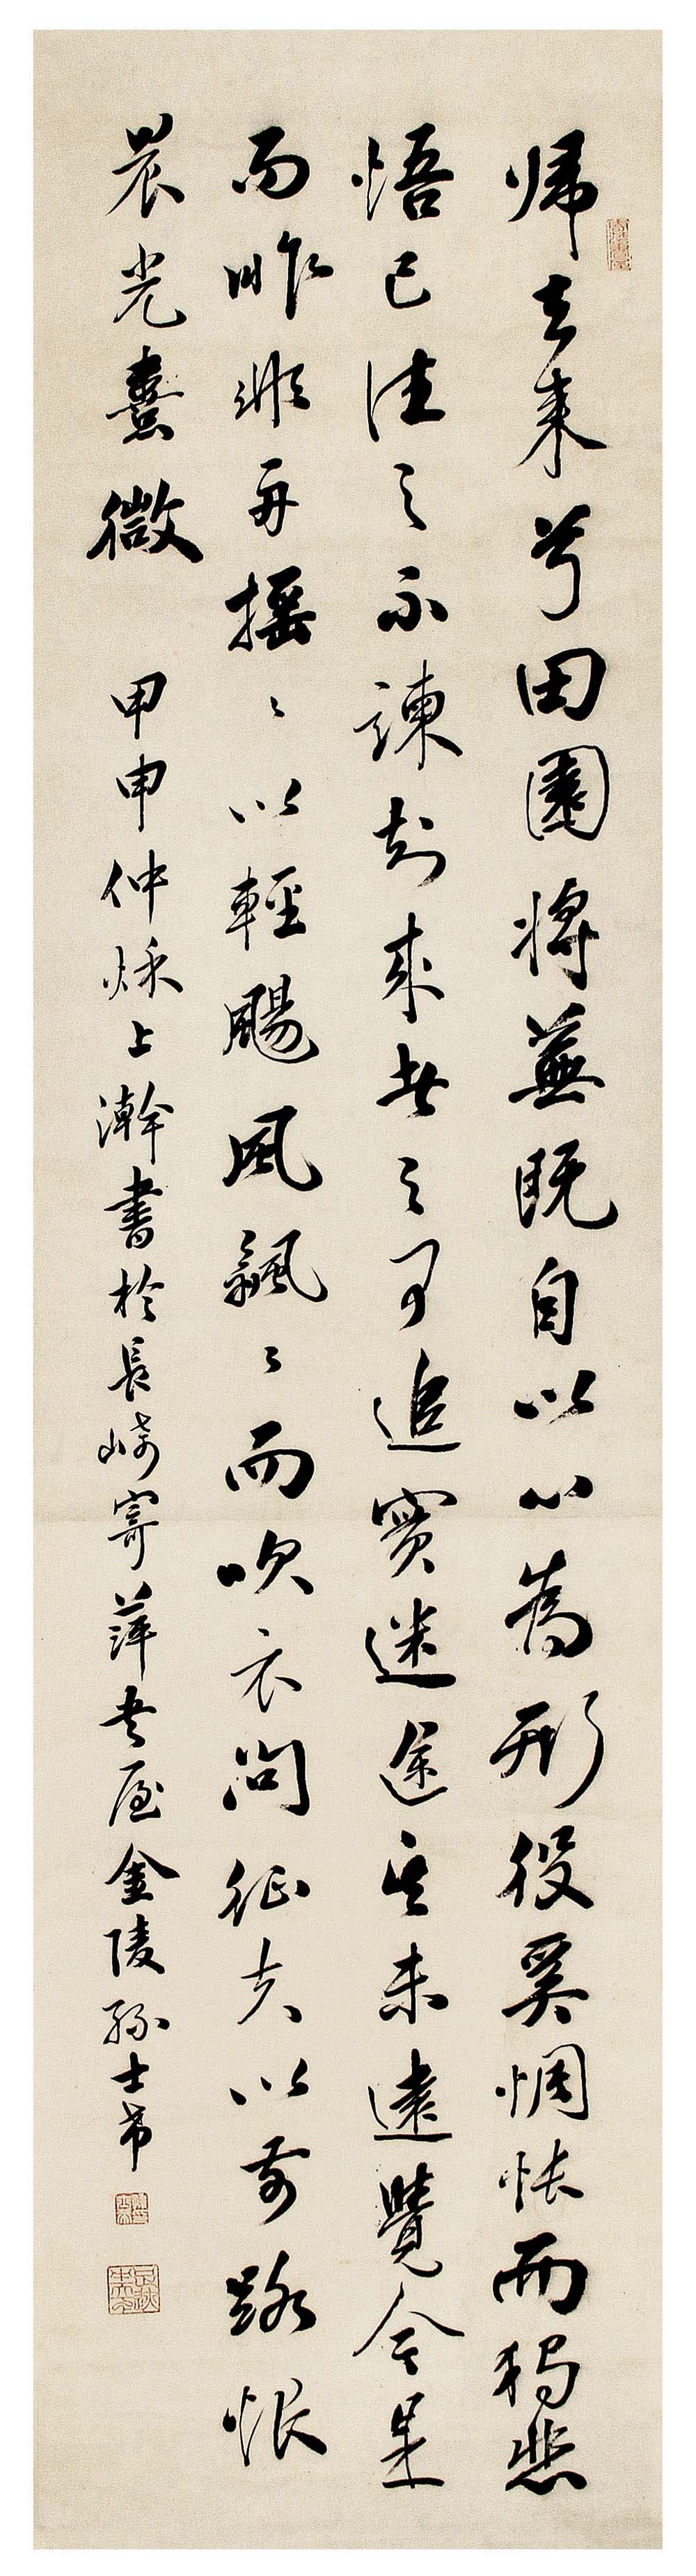 帰去来兮田園將蕪既自以心為形役奚惆悵而獨悲
悟已往之不諫知来者之可追實迷途其未遠覺今是
而昨非舟摇々以輕颺風飄々而吹衣問征夫以前路恨
晨光熹微 甲申仲秌上澣書於長崎寄萍老屋金陵孫士希